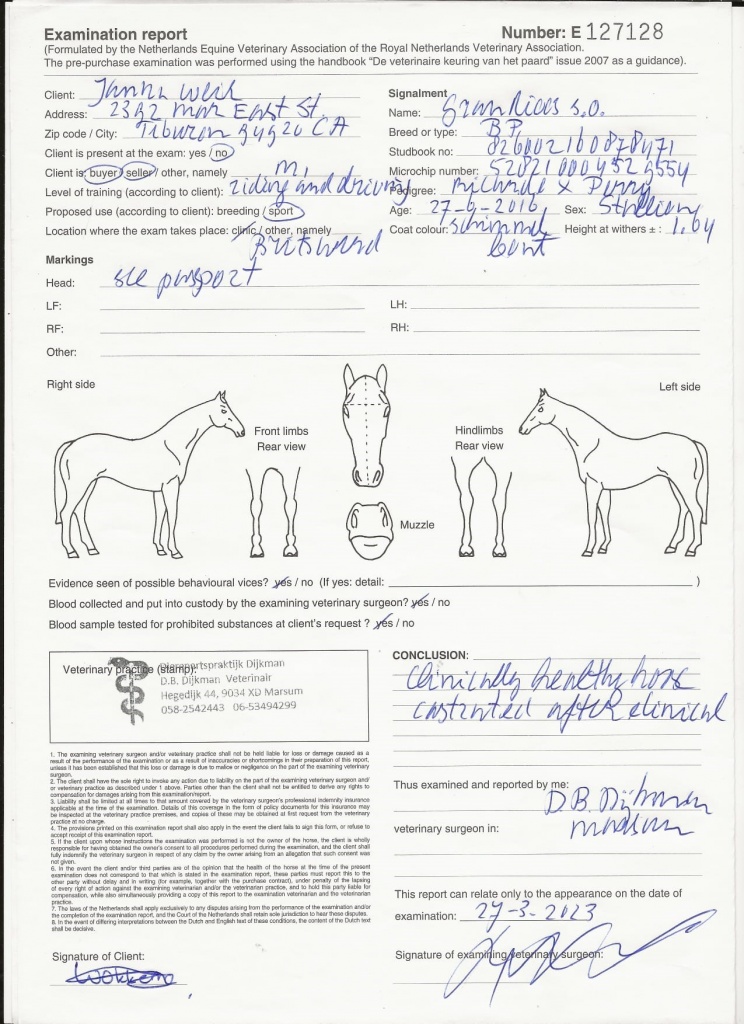 Examination report
Number: E 127128
(Formulated by the Netherlands Equine Veterinary Association of the Royal Netherlands Veterinary Association.
The pre-purchase examination was performed using the handbook “De veterinaire keuring van het paard” issue 2007 as a guidance).
Client:
Address: East St
Zip code / City: Tiburon CA
Client is present at the exam: yes / no
Client is: buyer / seller / other, namely
Level of training (according to client): riding and driving
Proposed use (according to client): breeding / sport
Location where the exam takes place: clinic / other, namely
Britswerd
Signalment
Name:
Breed or type:
Studbook no:
Microchip number:
Pedigree: x
Age: 27-6-2016 Sex: Stallion
Coat colour: schimmel Height at withers ± : 1.64
bont
Markings
Head: see pasport
LF:
LH:
RF:
RH:
Other:
Right side
Left side
Front limbs
Rear view
Hindlimbs
Rear view
Muzzle
Evidence seen of possible behavioural vices? yes / no (If yes: detail: )
Blood collected and put into custody by the examining veterinary surgeon? yes / no
Blood sample tested for prohibited substances at client's request ? yes / no
Veterinary practice (stamp):
Diersportspraktijk Dijkman
D.B. Dijkman Veterinair
Hegedijk 44, 9034 XD Marsum
058-2542443 06-53494299
CONCLUSION:
Clinically healthy hors
castrated after clinical
1. The examining veterinary surgeon and/or veterinary practice shall not be held liable for loss or damage caused as a
result of the performance of the examination or as a result of inaccuracies or shortcomings in their preparation of this report,
unless it has been established that this loss or damage is due to malice or negligence on the part of the examining veterinary
surgeon.
2. The client shall have the sole right to invoke any action due to liability on the part of the examining veterinary surgeon and/
or veterinary practice as described under 1 above. Parties other than the client shall not be entitled to derive any rights to
compensation for damages arising from this examination/report.
3. Liability shall be limited at all times to that amount covered by the veterinary surgeon's professional indemnity insurance
applicable at the time of the examination. Details of this coverage in the form of policy documents for this insurance may
be inspected at the veterinary practice premises, and copies of these may be obtained at first request from the veterinary
practice at no charge.
4. The provisions printed on this examination report shall also apply in the event the client fails to sign this form, or refuse to
accept receipt of this examination report.
5. If the client upon whose instructions the examination was performed is not the owner of the horse, the client is wholly
responsible for having obtained the owner's consent to all procedures performed during the examination, and the client shall
fully indemnify the veterinary surgeon in respect of any claim by the owner arising from an allegation that such consent was
not given.
6. In the event the client and/or third parties are of the opinion that the health of the horse at the time of the present
examination does not correspond to that which is stated in the examination report, these parties must report this to the
other party without delay and in writing (for example, together with the purchase contract), under penalty of the lapsing
of every right of action against the examining veterinary and/or the veterinary practice, and to hold this party liable for
compensation, while also simultaneously providing a copy of this report to the examination veterinarian and the veterinary
practice.
7. The laws of the Netherlands shall apply exclusively to any disputes arising from the performance of the examination and/or
the completion of the examination report, and the Court of the Netherlands shall retain sole jurisdiction to hear these disputes.
8. In the event of differing interpretations between the Dutch and English text of these conditions, the content of the Dutch text
shall be decisive.
Thus examined and reported by me:
D.B. Dijkman
veterinary surgeon in: Marsum
This report can relate only to the appearance on the date of
examination: 27-3-2023
Signature of Client:
Signature of examining veterinary surgeon: